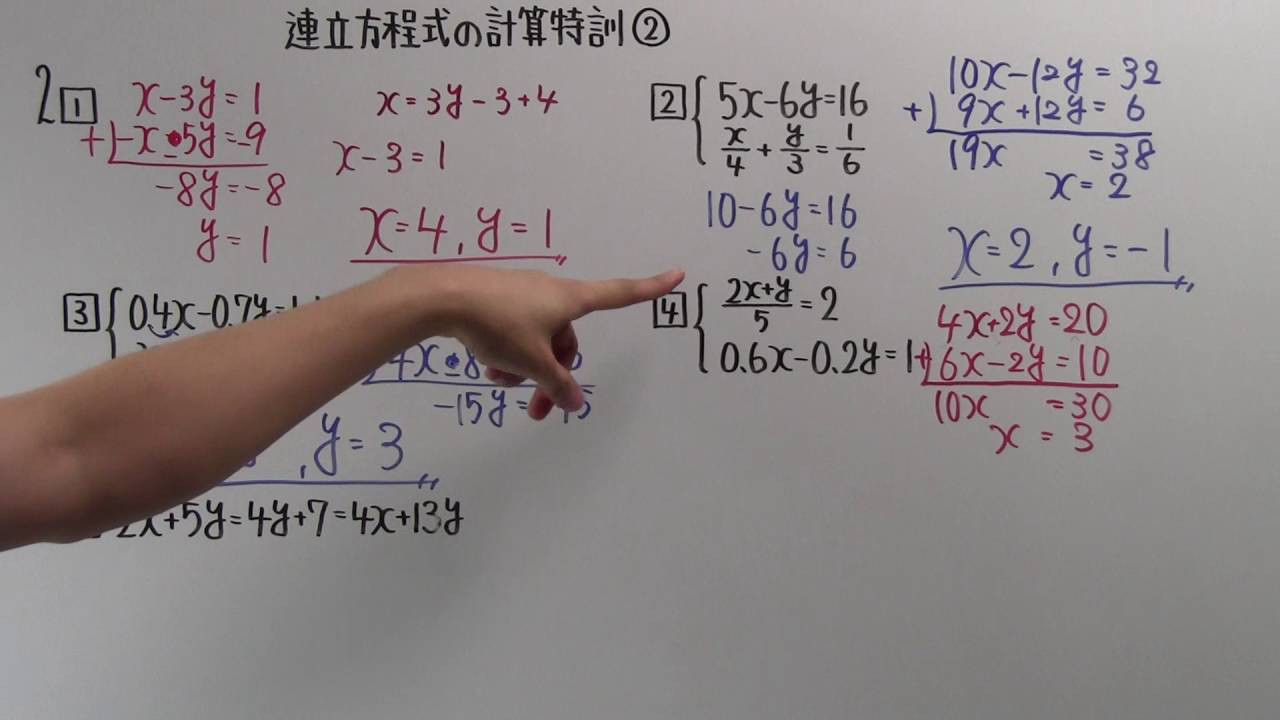 連立方程式の計算特訓②
2 1 x-3y=1
+) -x-5y=-9
-8y=-8
y=1
x=3y-3+4
x-3=1
x=4, y=1
2 5x-6y=16
x/4+y/3=1/6
10-6y=16
-6y=6
10x-12y=32
+) 9x+12y=6
19x =38
x=2
x=2, y=-1
3 0.4x-0.7y=
-15y=
, y=3
2x+5y=4y+7=4x+13y
4 (2x+y)/5=2
0.6x-0.2y=1
4x+2y=20
+) 6x-2y=10
10x =30
x=3